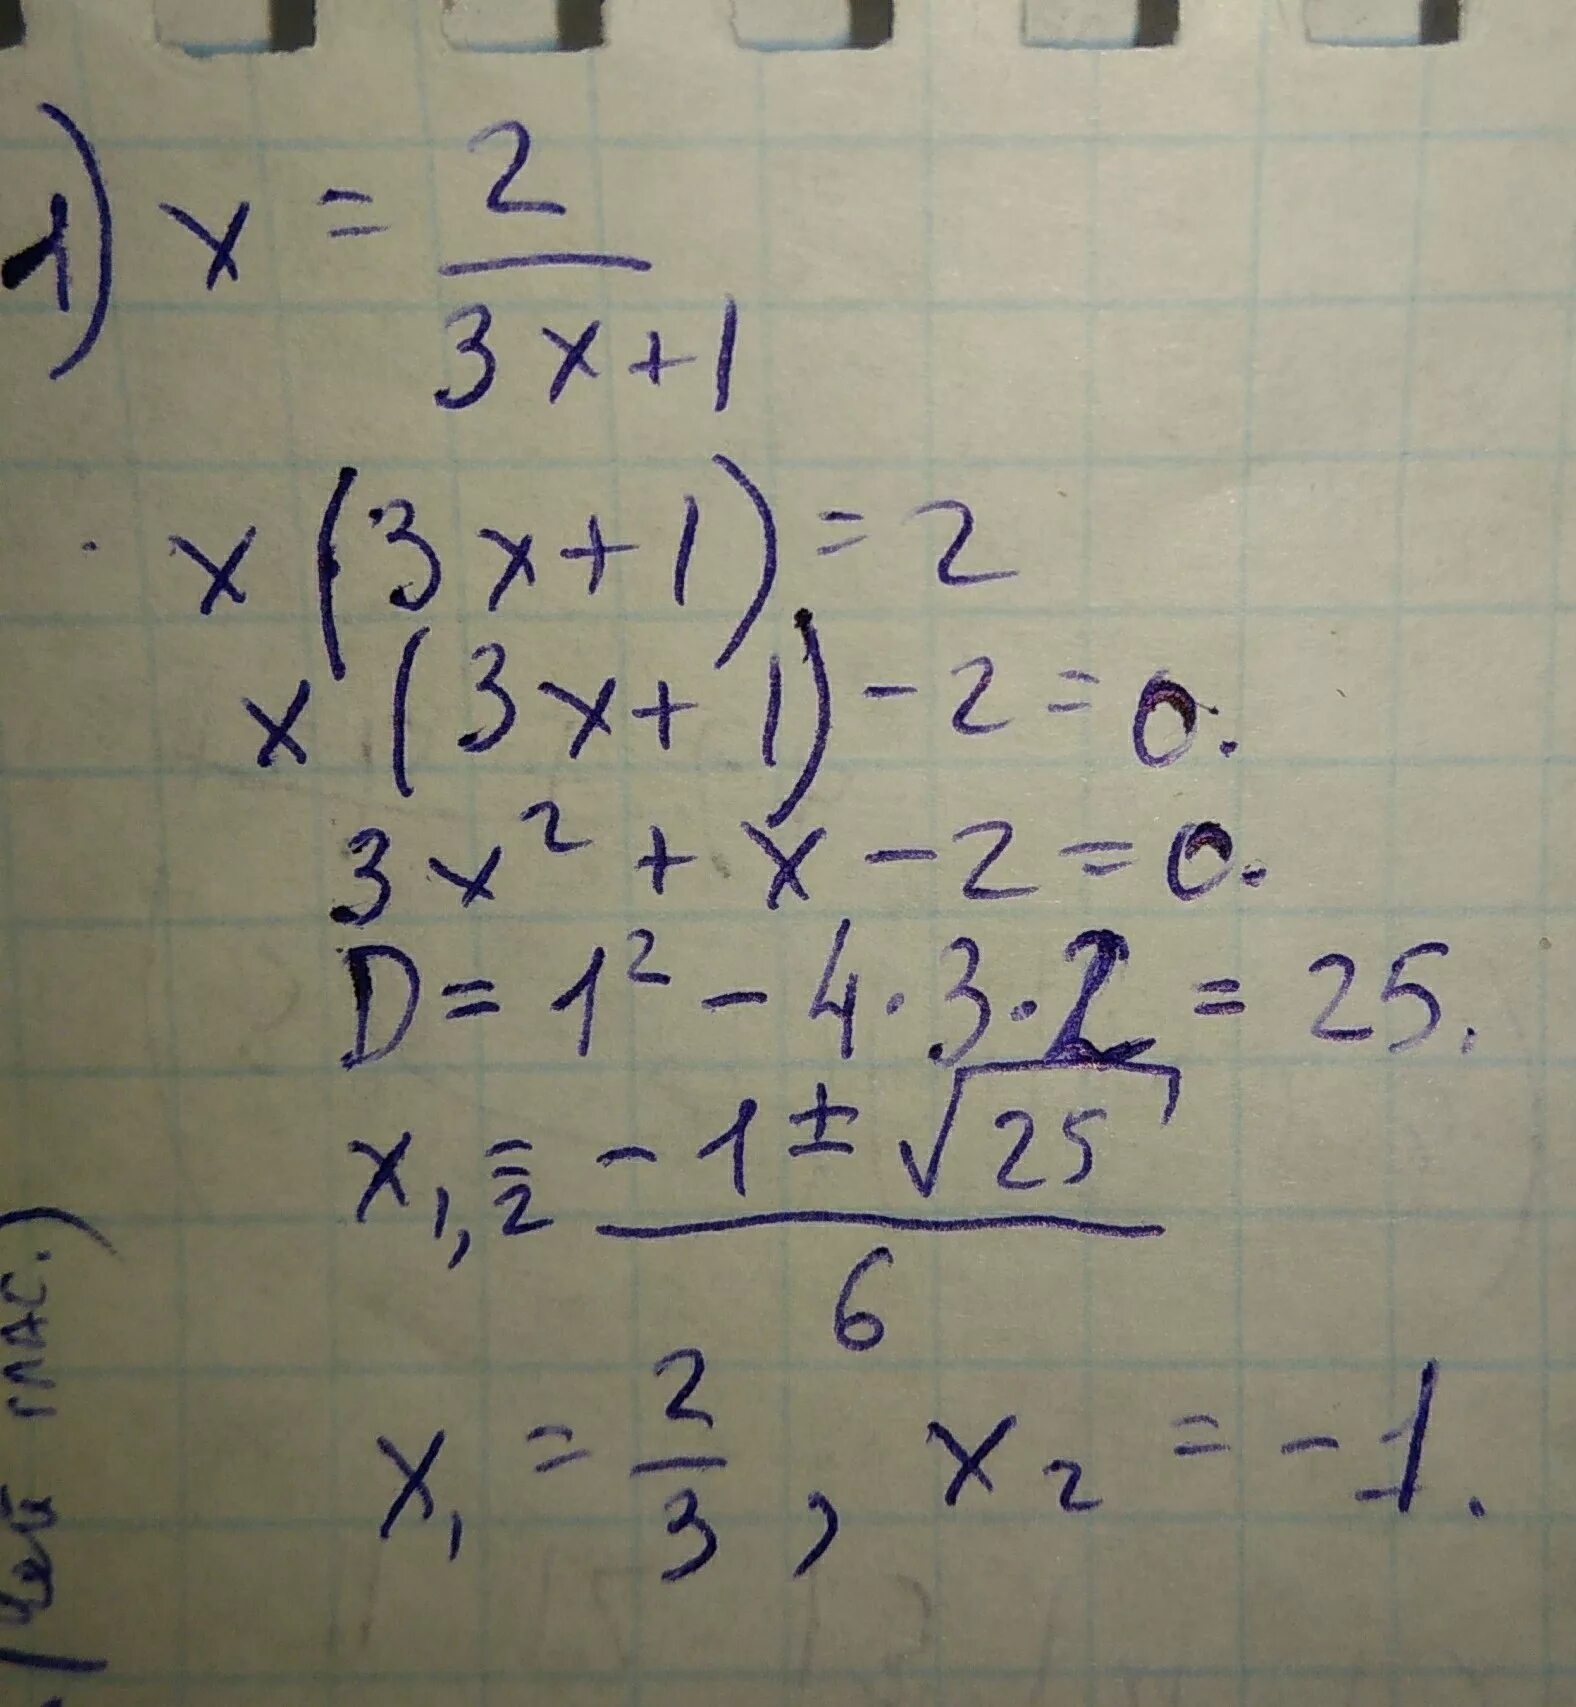 1) x = 2/(3x+1)
x(3x+1)=2
x(3x+1)-2=0.
3x²+x-2=0.
D=1²-4·3·2=25.
x₁,₂=(-1±√25)/6
x₁=2/3, x₂=-1.
глас.)